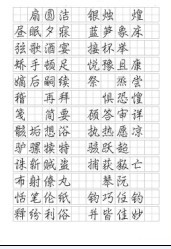 扇圆洁 银烛 煌
昼眠夕寐 蓝笋象床
独歌酒宴 接杯举
矫手顿足 悦豫且康
嫡后嗣续 祭 烝尝
稽 再拜 惧恐惶
笺 简要 顾答审详
骸垢想浴 执热愿凉
驴骡犊特 骇跃超
诛斩贼盗 捕获叛亡
布射僚丸 琴阮
恬笔伦纸 钧巧任钓
释纷利俗 并皆佳妙